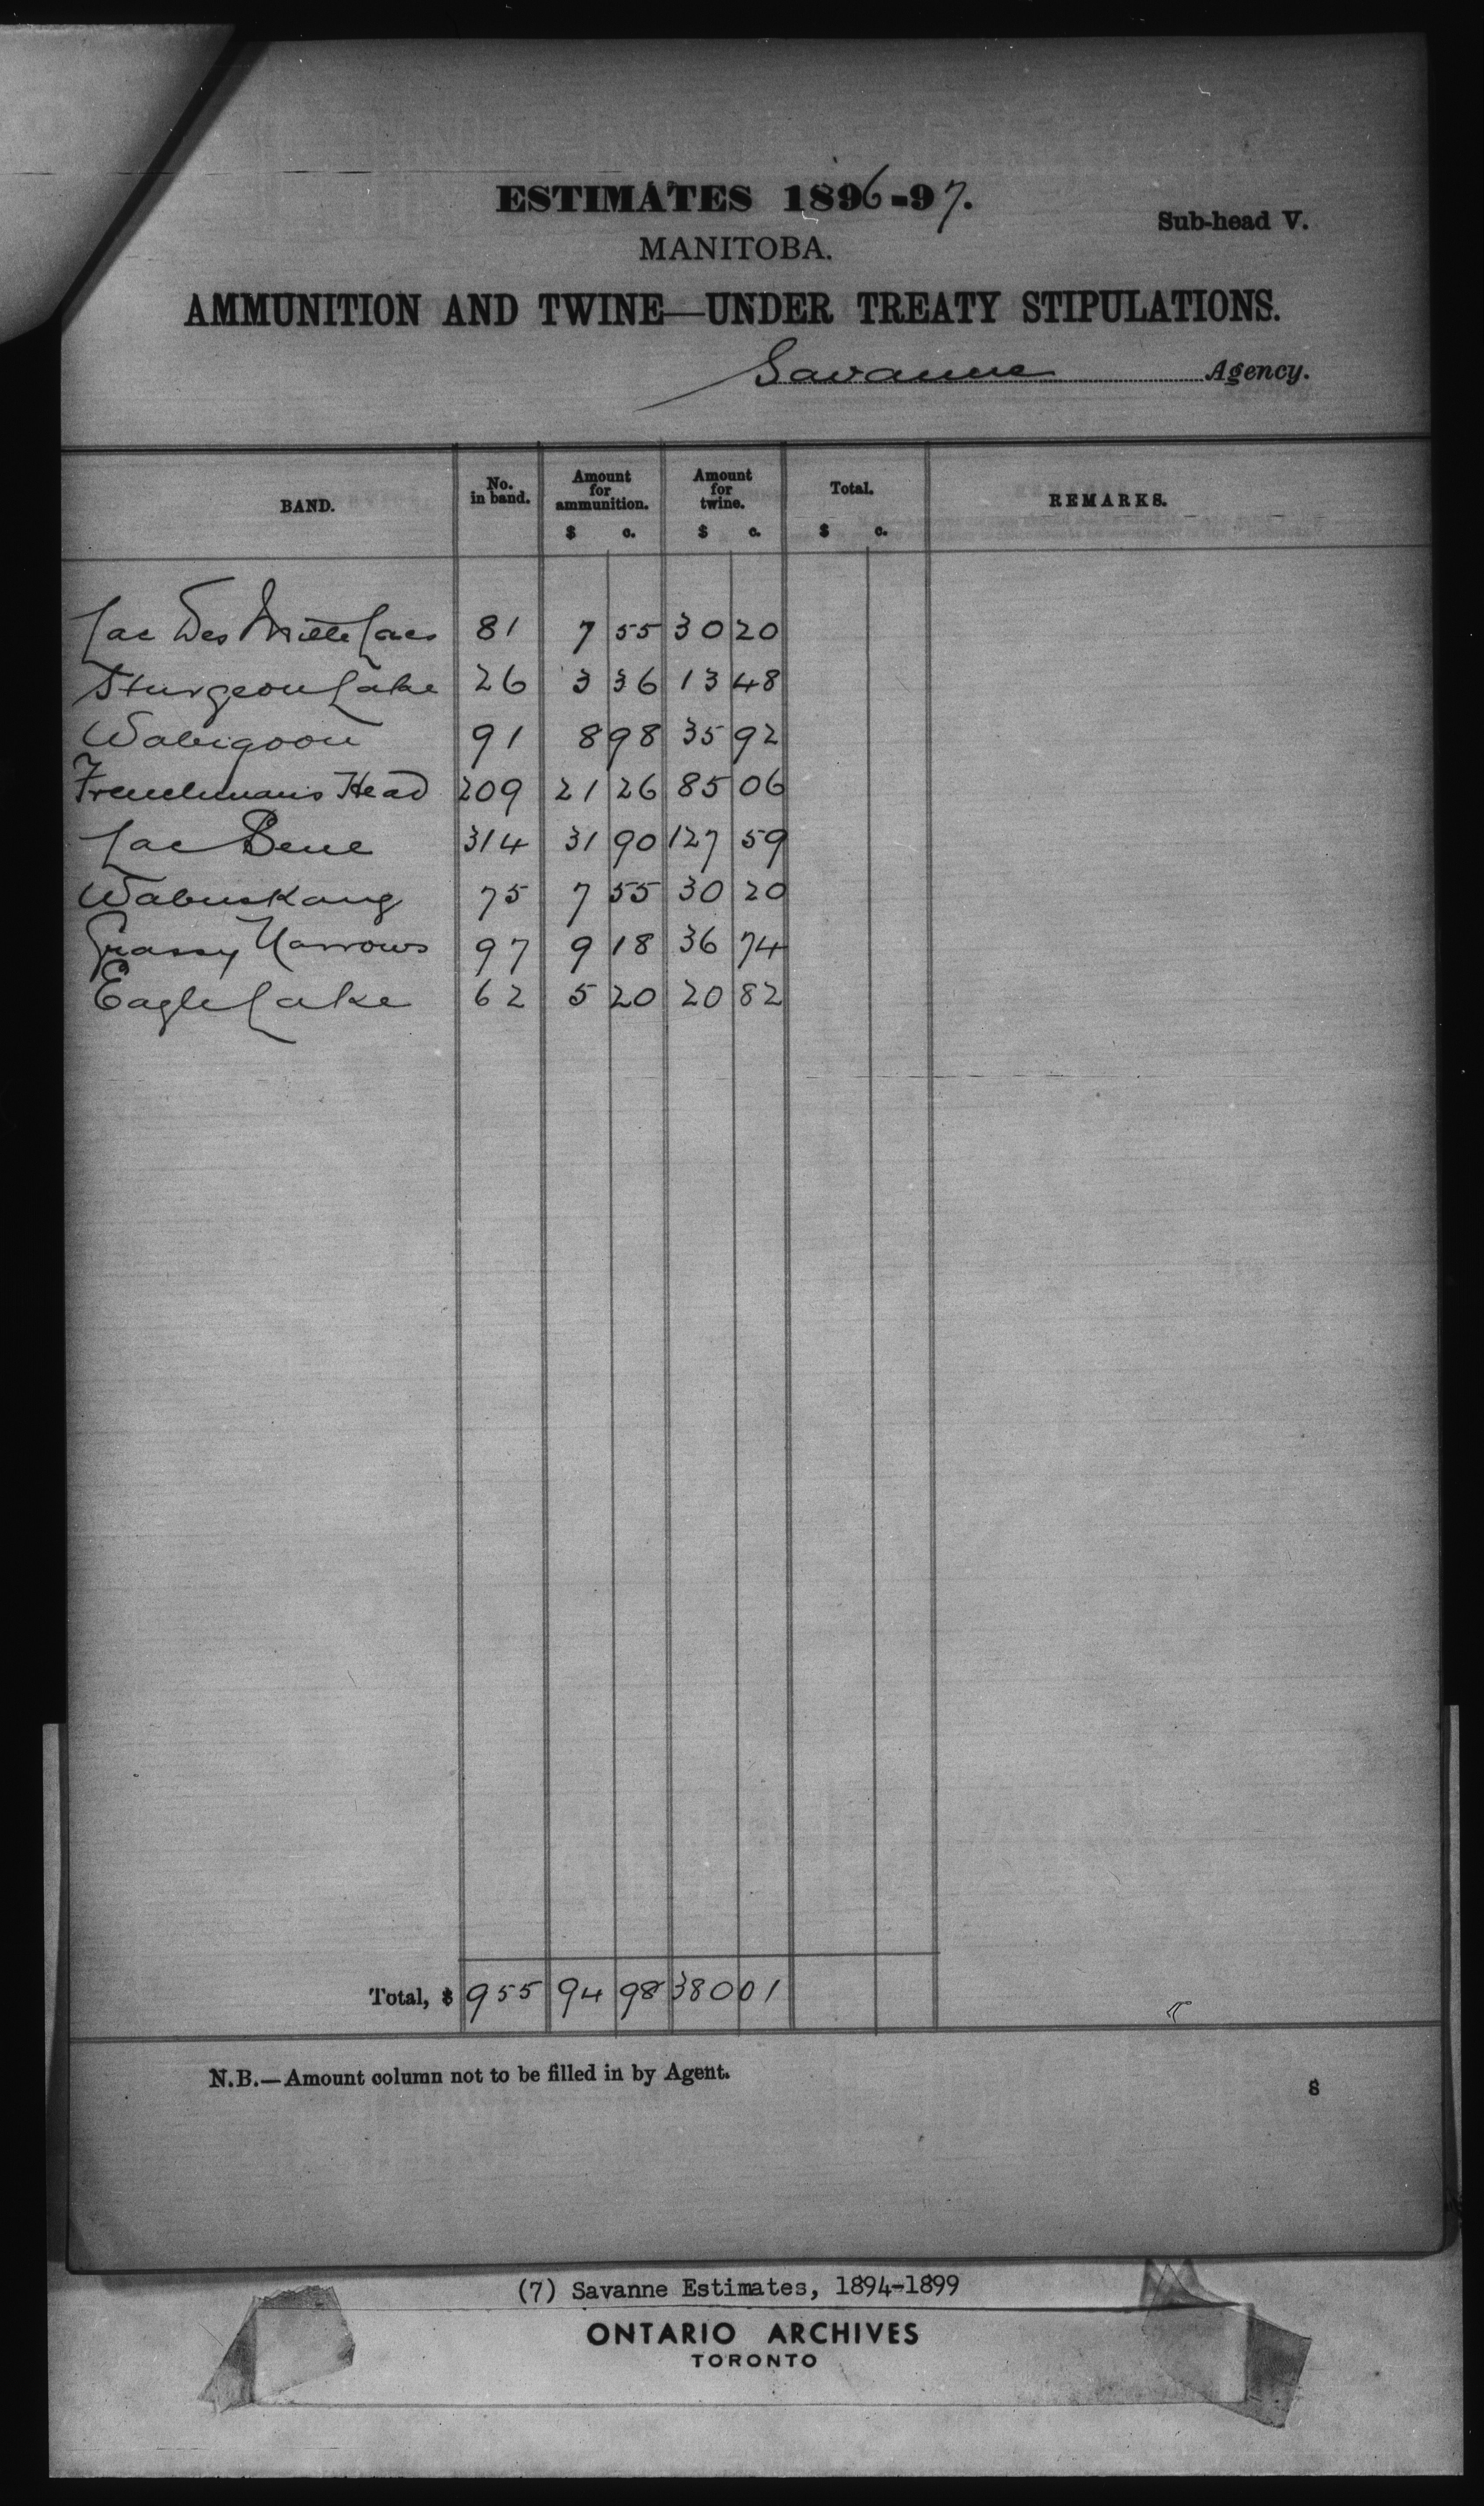 ESTIMATES 1896-97.
Sub-head V.
MANITOBA.
AMMUNITION AND TWINE—UNDER TREATY STIPULATIONS.
Savanne Agency.
BAND. No. in band. Amount for ammunition. $ c. Amount for twine. $ c. Total. $ c. REMARKS.
Lac Des Mille Lacs 81 7 55 30 20
Sturgeon Lake 26 3 36 13 48
Wabigoon 91 8 98 35 92
Frenchman's Head 209 21 26 85 06
Lac Seul 314 31 90 127 59
Wabuskang 75 7 55 30 20
Grassy Narrows 97 9 18 36 74
Eagle Lake 62 5 20 20 82
Total, $ 955 94 98 380 01
N.B.—Amount column not to be filled in by Agent.
8
(7) Savanne Estimates, 1894-1899
ONTARIO ARCHIVES
TORONTO